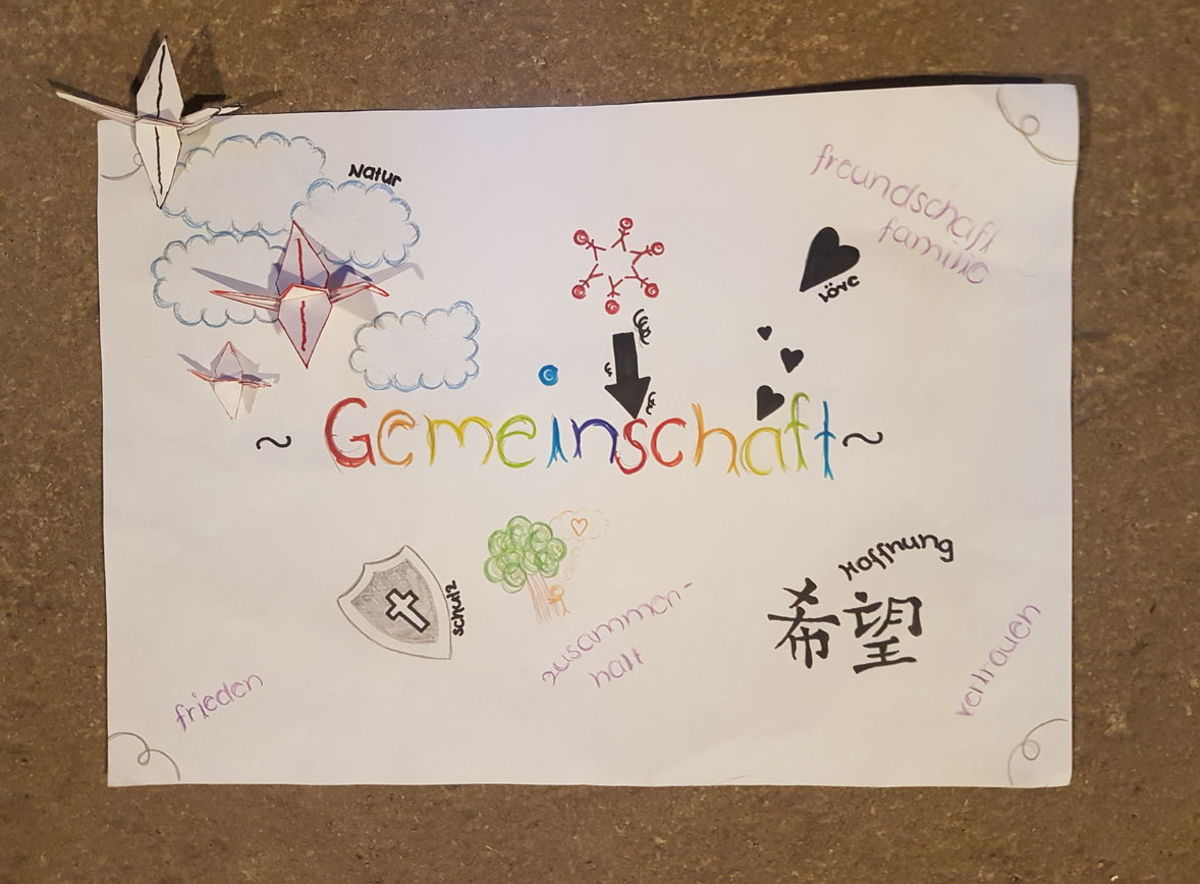 Natur
freundschaft
familie
löve
~ Gemeinschaft ~
schutz
zusammen-
halt
Hoffnung
希望
frieden
vertrauen